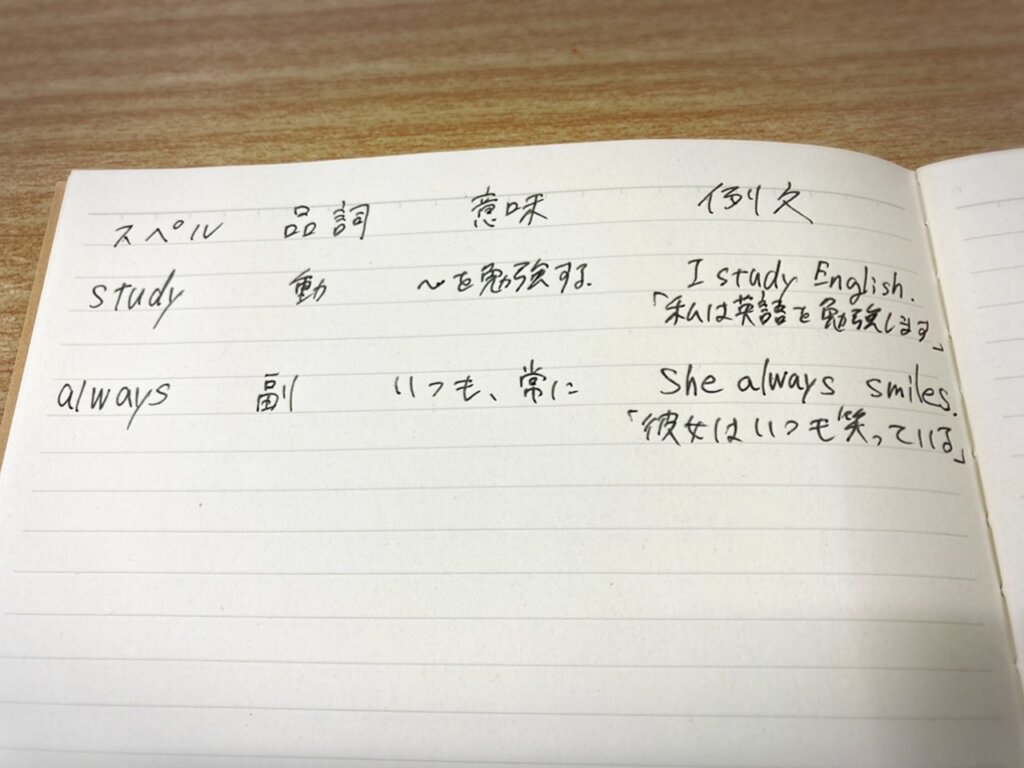 スペル 品詞 意味 例文
study 動 ～を勉強する. I study English.
「私は英語を勉強します」
always 副 いつも、常に She always smiles.
「彼女はいつも笑っている」